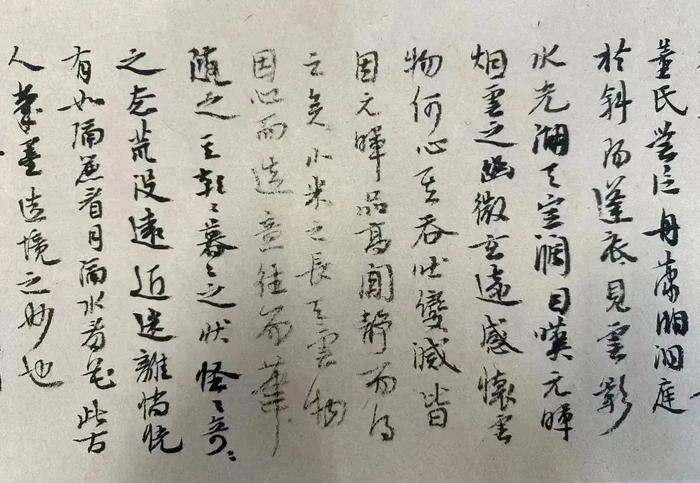 董氏嘗泛舟蕭湘洞庭
於斜陽蓬底見雲影
水光湖天空濶目嘆元暉
烟雲之幽微玄遠感懷雲
物何心其吞吐變滅皆
因元暉品高閒静而得
之矣小米之長天雲物
因心而造意往而筆
隨之至朝〻暮〻之状怪〻奇〻
之态荒没遠近迷離惝恍
有如隔簾看月隔水看花此古
人筆墨造境之妙也